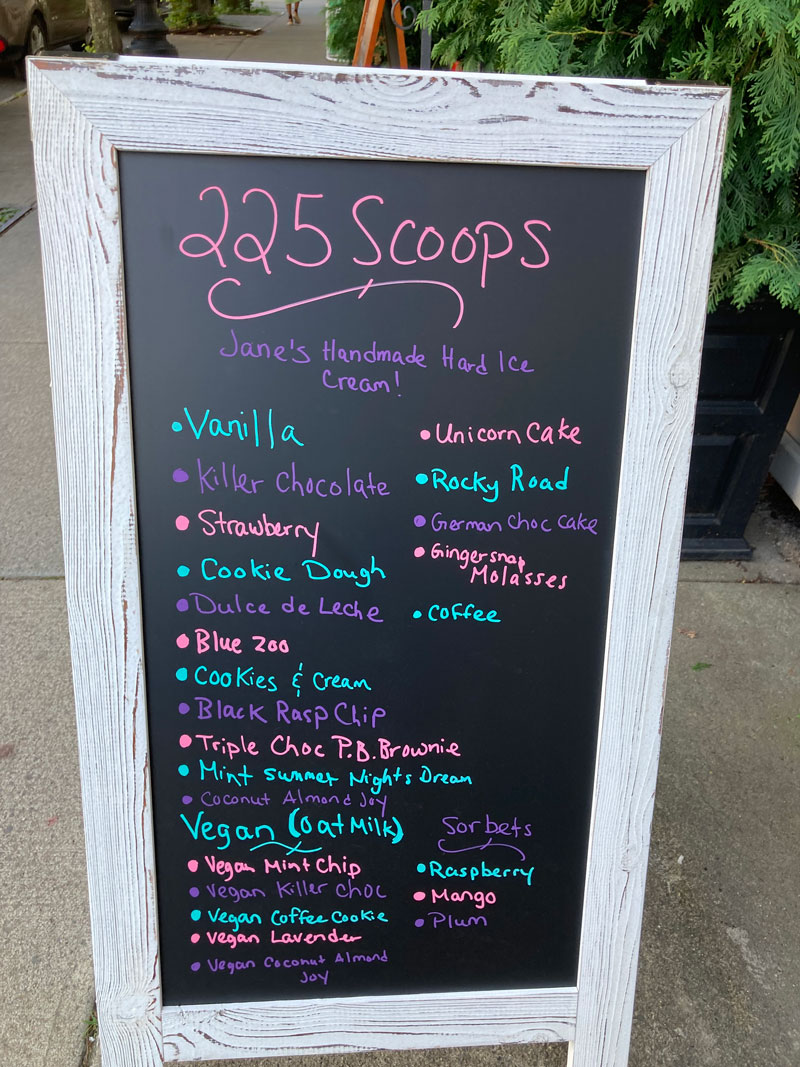 225 Scoops
Jane's Handmade Hard Ice
Cream!
• Vanilla
• Killer Chocolate
• Strawberry
• Cookie Dough
• Dulce de Leche
• Blue Zoo
• Cookies & Cream
• Black Rasp Chip
• Triple Choc P.B. Brownie
• Mint Summer Nights Dream
• Coconut Almond Joy
• Unicorn Cake
• Rocky Road
• German Choc Cake
• Gingersnap
Molasses
• Coffee
Vegan (Oat Milk)
• Vegan Mint Chip
• Vegan Killer Choc
• Vegan Coffee Cookie
• Vegan Lavender
• Vegan Coconut Almond
Joy
Sorbets
• Raspberry
• Mango
• Plum